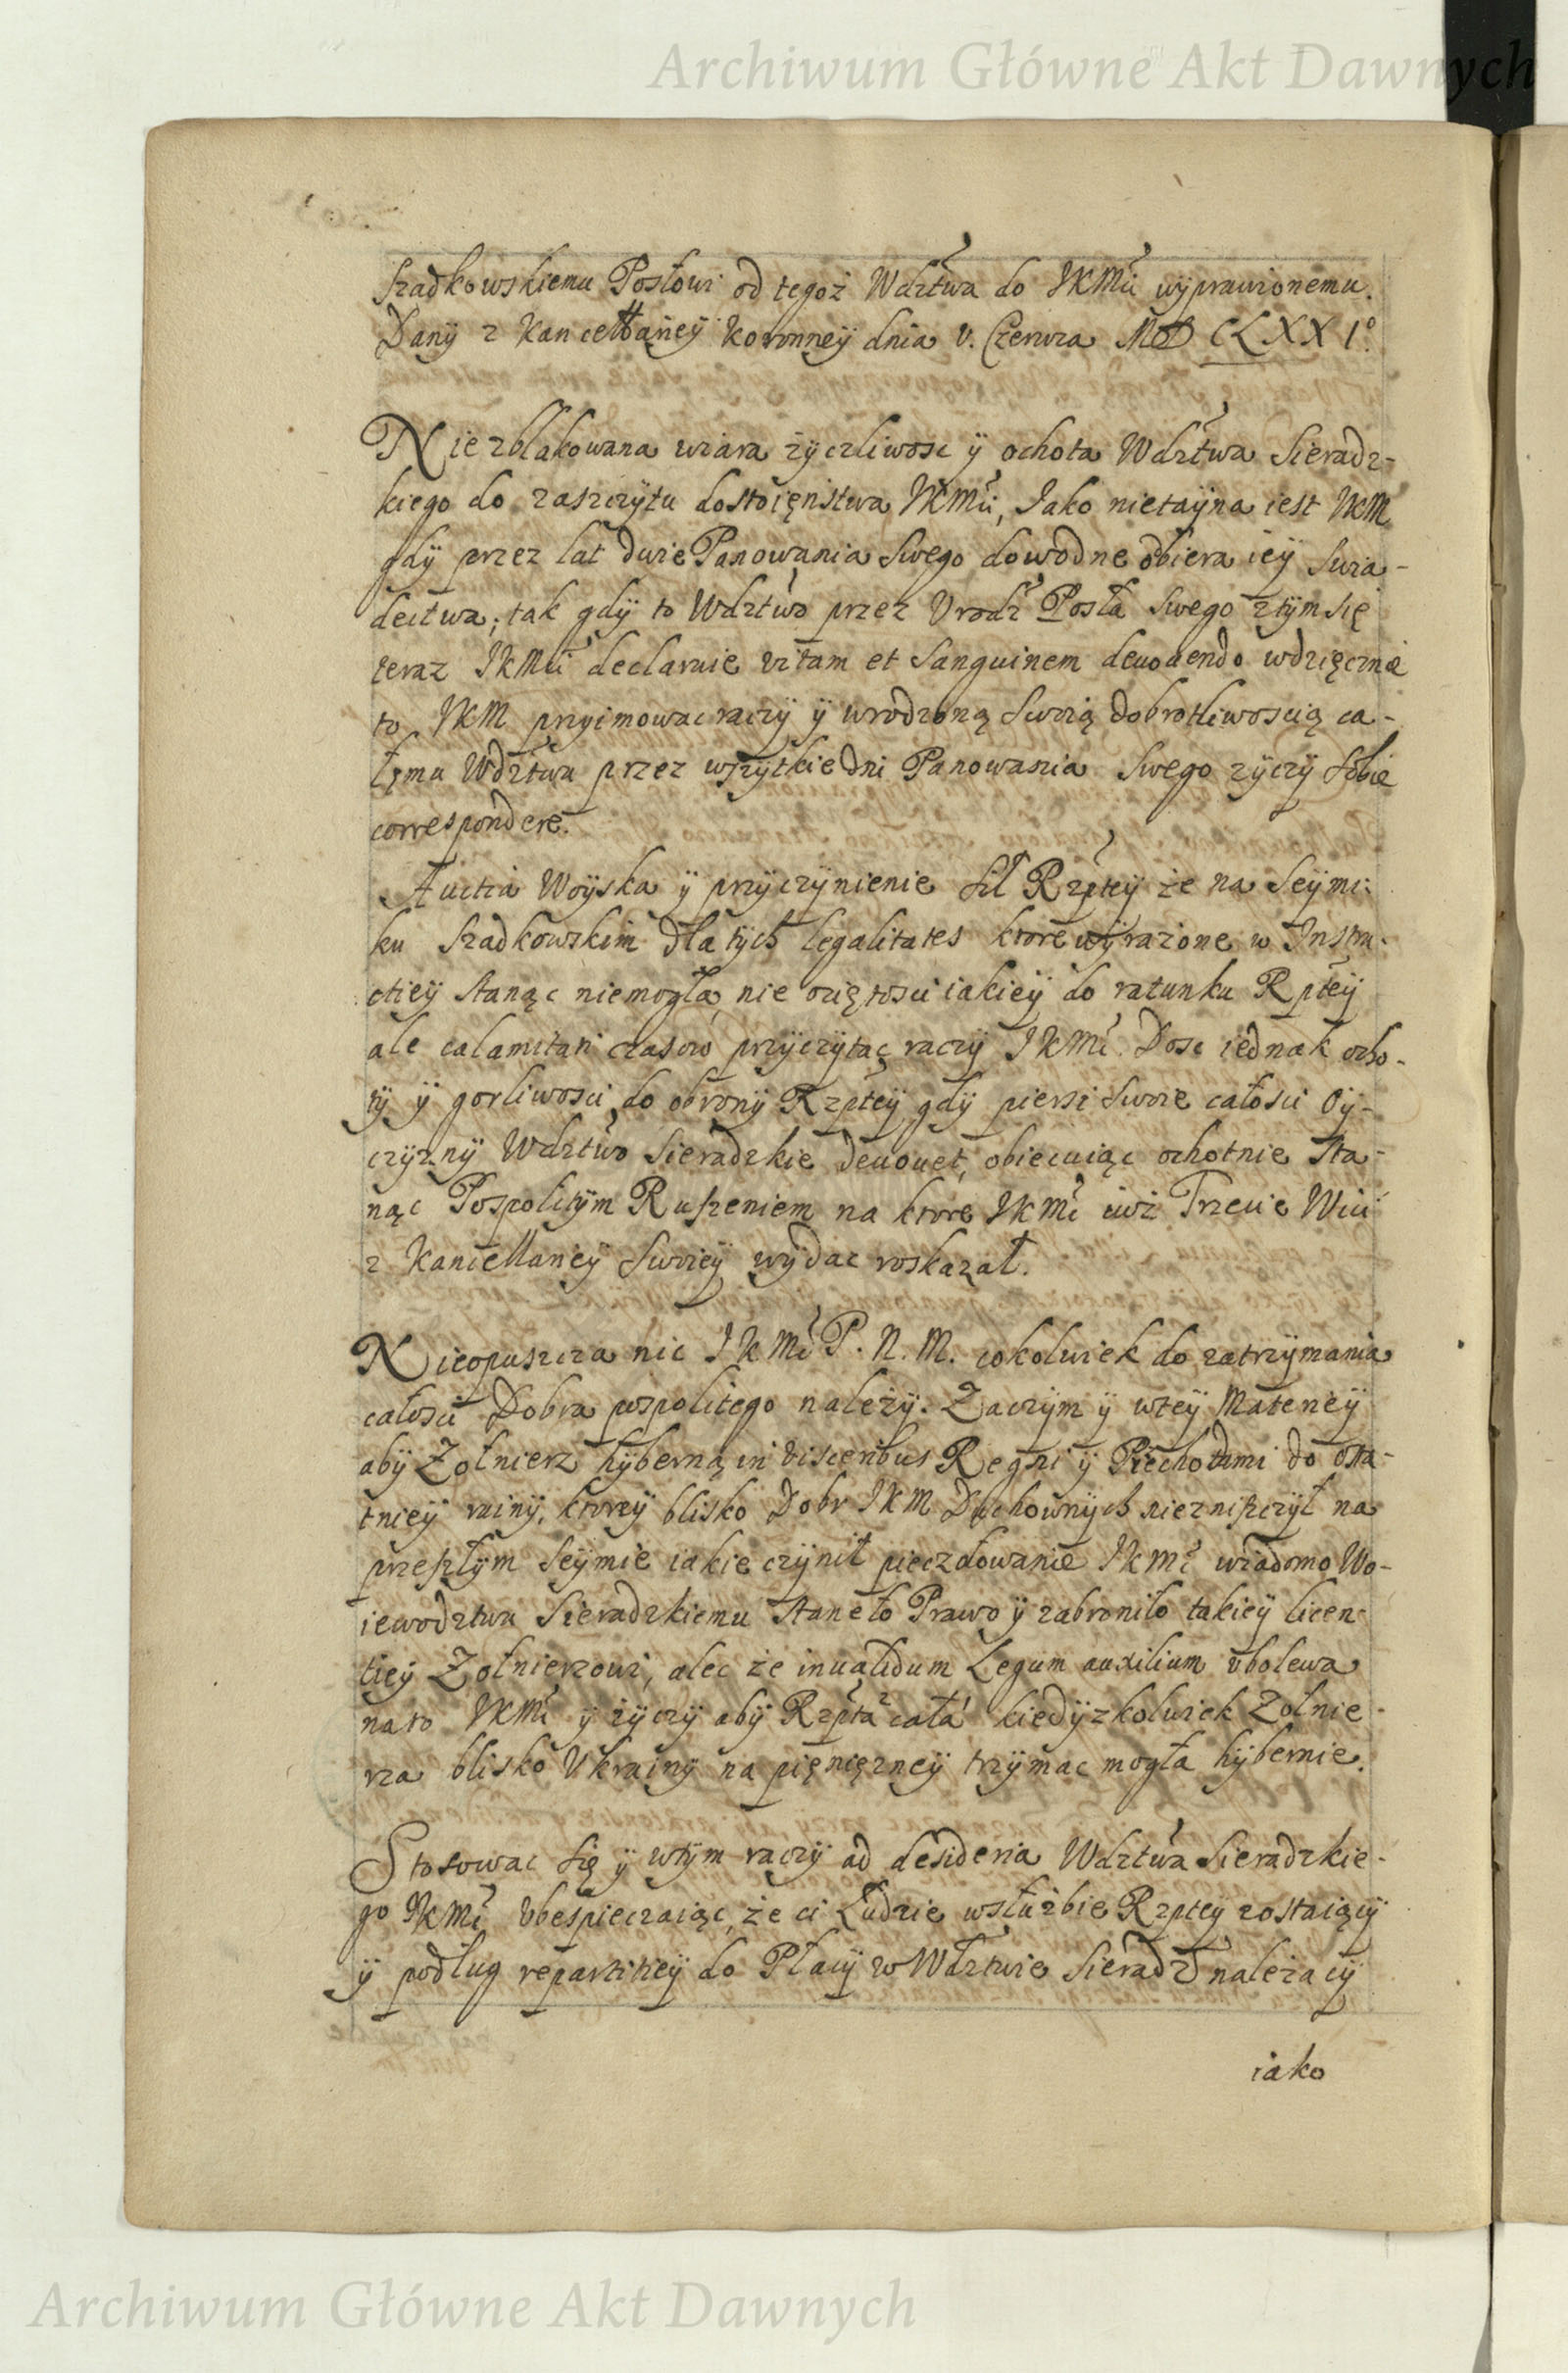 Archiwum Główne Akt Dawnych
Szadkowskiemu Posłowi od tegoż Wdztwa do JKMci wyprawionemu.
Dany z Kancellariey Koronney dnia v. Czerwca MDCLXXI°.
Niezblakowana wiara życzliwosc ÿ ochota Wdztwa Sieradz-
kiego do zaszczÿtu dostoięnstwa JKMci, Jako nietaÿna iest JKM
gdÿ przez lat dwie Panowania Swego dowodne obiera ieÿ Swia-
dectwa; tak gdÿ to Wdztwo przez Vrodz Posła Swego ztÿm Się
teraz JKMci declaruie vitam et Sanguinem deuouendo wdzięcznie
to JKM przyimowac raczÿ ÿ wrodzoną Swoią dobrotliwoscią ca-
łemu Wdztwu przez wszÿtkie dni Panowania Swego zÿczÿ Sobie
correspondere.
Auctia Woÿska ÿ przÿczÿnienie Sił Rzpteÿ że na Seÿmi-
ku Szadkowskim dla tÿch legalitates ktore wÿrazone w Instru-
ctieÿ Stanąc niemogła, nie oziętosci iakieÿ do ratunku Rpteÿ
ale calamitati czasow przÿczÿtac raczÿ JKMc. Dosc iednak ocho-
tÿ ÿ gorliwosci do obronÿ Rzpteÿ gdÿ piersi Swoie całosci Oÿ-
czÿznÿ Wdztwo Sieradzkie deuouet, obiecuiąc ochotnie Sta-
nąc Pospolitÿm Ruszeniem na ktore JKMc iuż Trzecie Wici
z Kancellarieÿ Swoieÿ wÿdac roskazał.
Nieopuszcza nic JKMc P. N. M. cokolwiek do zatrzÿmania
całosci Dobra pospolitego należÿ. Zaczÿm ÿ wteÿ Materieÿ
abÿ Żołnierz hÿberną in visceribus Regni ÿ Piechotami do osta-
tnieÿ ruinÿ, ktoreÿ blisko Dobr JKM Duchownÿch nieznisczÿł na
przeszłÿm Seÿmie iakie czÿnił pieczołowanie JKMc wiadomo Wo-
iewodztwu Sieradzkiemu Staneło Prawo ÿ zabroniło takieÿ licen-
tieÿ Żołnierzowi, alec że inualidum Legum auxilium vbolewa
nato JKMc ÿ życzÿ abÿ Rzpta cała kiedÿzkolwiek Żołnie-
rza blisko Vkrainÿ na pięnięzneÿ trzÿmac mogła hÿbernie.
Stosowac Się ÿ wtÿm raczÿ ad desideria Wdztwa Sieradzkie-
go JKMc Vbespieczaiąc, że ci Ludzie wsłużbie Rzptey zostaiącÿ
ÿ podług repartitieÿ do Płacÿ w Wdztwie Sieradz należacÿ
iako
Archiwum Główne Akt Dawnych